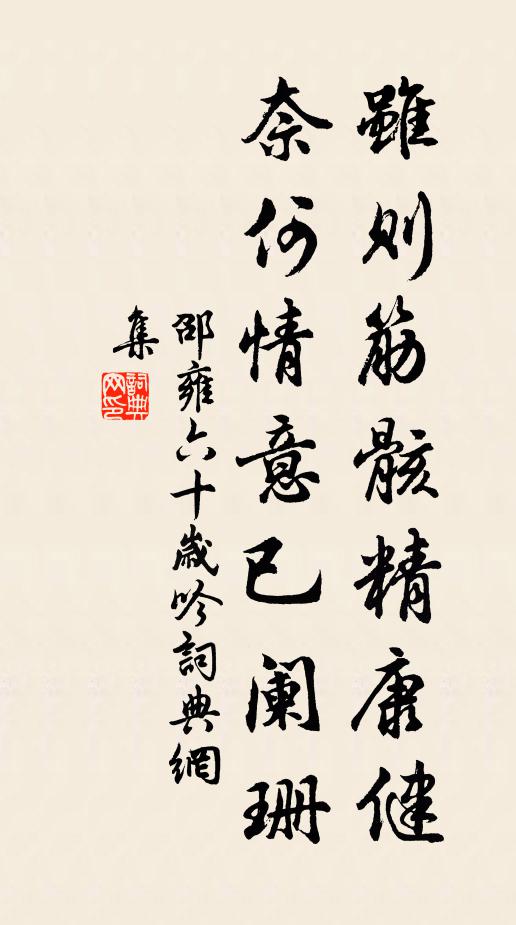 雖則筋骸精康健
奈何情意已阑珊
邵雍六十歲吟詞典網
集
詞典
网印